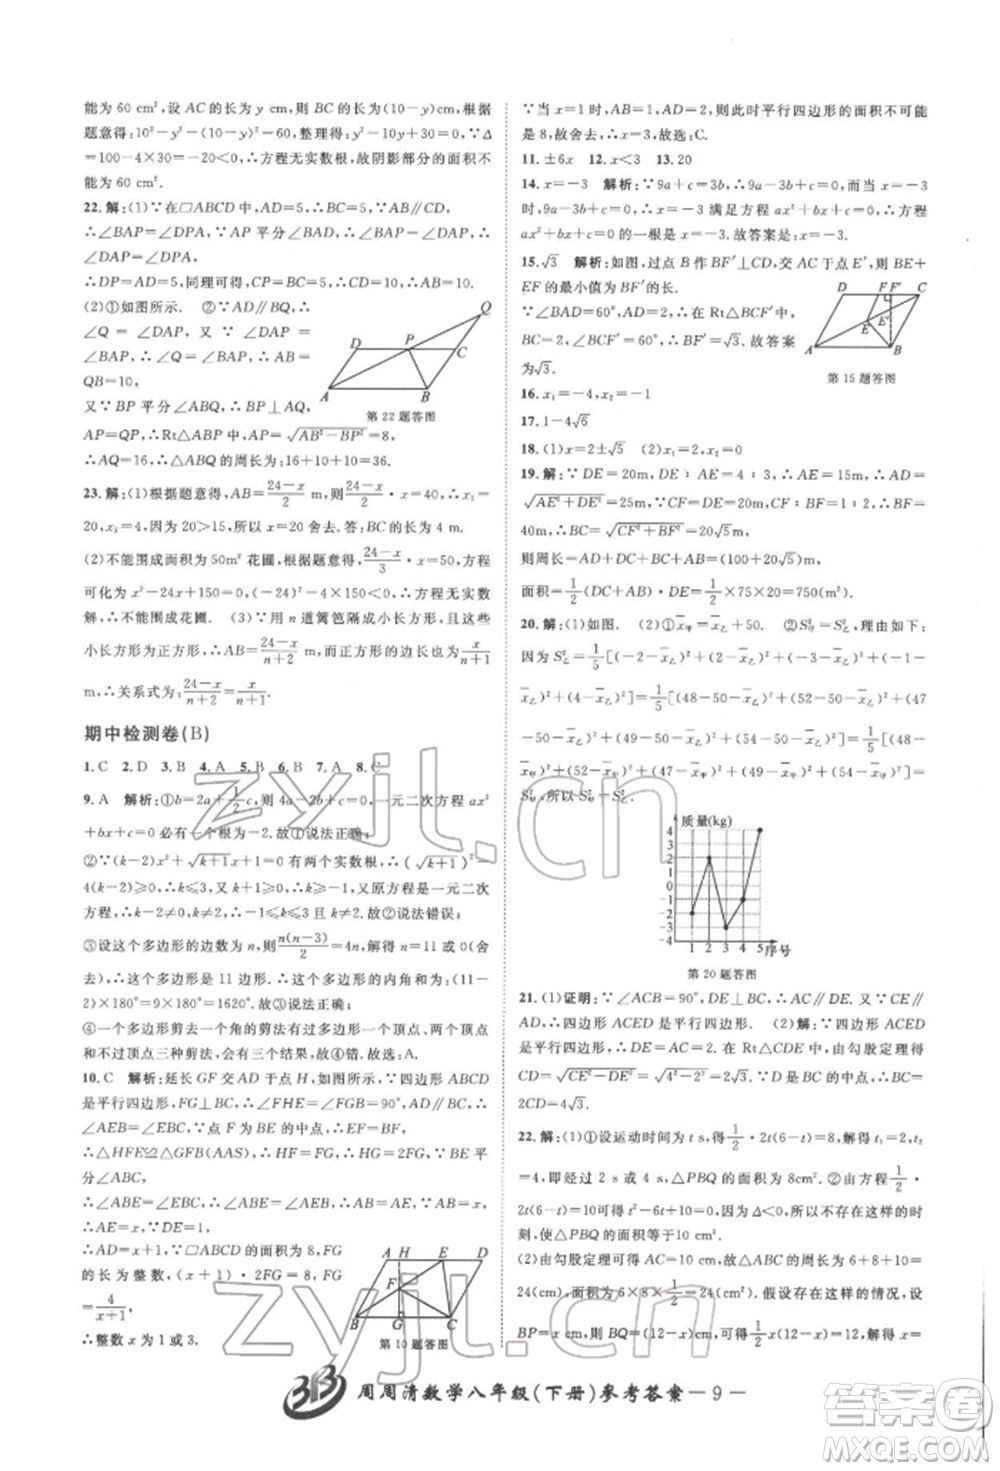 能为60 cm²,设 AC 的长为 y cm,则 BC 的长为(10-y)cm,根据
题意得:10²-y²-(10-y)²=60,整理得:y²-10y+30=0,∵Δ
=100-4×30=-20<0,∴方程无实数根,故阴影部分的面积不可
能为 60 cm².
22.解:(1)∵在□ABCD 中,AD=5,∴BC=AD=5,AB∥CD.
∴∠BAP=∠DPA.∵AP 平分∠BAD,∴∠BAP=∠DAP,
∴∠DAP=∠DPA.
∴DP=AD=5,同理可得,CP=BC=5.∴CD=10,∴AB=10.
(2)①如图所示. ②∵AD∥BQ,∴
∠Q=∠DAP,又∵∠DAP=
∠BAP,∴∠Q=∠BAP,∴AB=
QB=10,
又∵BP 平分∠ABQ,∴BP⊥AQ,
AP=QP,∴Rt△ABP 中,AP=√AB²-BP²=8,
∴AQ=16,∴△ABQ 的周长为:16+10+10=36.
D P C Q A B
第 22 题答图
23.解:(1)根据题意得,AB=24-x/2 m,则24-x/2·x=40,∴x₁=
20,x₂=4,因为 20>15,所以 x=20 舍去.答:BC 的长为 4 m.
(2)不能围成面积为50m² 花圃,根据题意得,24-x/3·x=50,方程
可化为 x²-24x+150=0,(-24)²-4×150<0,方程无实数解,
∴不能围成花圃. (3)∵用 n 道篱笆隔成小长方形,且这些
小长方形为正方形,AB=24-x/n+2 m,而正方形的边长也为x/n+1
m,∴关系式为:24-x/n+2=x/n+1.
期中检测卷(B)
1.C 2.D 3.B 4.A 5.B 6.B 7.A 8.C
9.A 解析:①b=2a+1/2c,则 4a-2b+c=0,一元二次方程 ax²
+bx+c=0 必有一个根为-2.故①说法正确;
②∵(k-2)x²-√k+1x+1/4=0 有两个实数根,∴(√k+1)²-
4(k-2)≥0,∴k≤3,k≥-1,又原方程是一元二次
方程,∴k≠2,∴-1≤k≤3 且 k≠2.故②说法错误;
③设这个多边形的边数为 n,则n(n-3)/2=4n,解得 n=11 或 0(舍
去),∴这个多边形是 11 边形.∴这个多边形的内角和为(11-
2)×180°=9×180°=1620°.故③说法正确;
④一个多边形剪去一个角的剪法有过多边形一个顶点、两个顶点
和不过顶点三种剪法,会出现三个结果.故④错.故选:A.
10.C 解析:延长 GF 交 AD 于点 H,如图所示:∵四边形 ABCD
是平行四边形,FG⊥BC,∴∠FHE=∠FGB=90°,AD∥BC,∴
∠AEB=∠EBC,∵点 F 为 BE 的中点,∴EF=BF,
∴△HFE≌△GFB(AAS),∴HF=GF,∴HG=2FG,∵BE 平
分∠ABC,
∴∠ABE=∠CBE,∴∠ABE=∠AEB,∴AB=AE,∵AB=x,
∴AE=x,∵DE=1,
∴AD=x+1,∵平行四边形 ABCD
的长为整数,(x+1)·2FG=8,∴
FG=4/x+1,
∴整数 x 为 1 或 3.
A H E D F B G C
第 10 题答图
∵当 x=1时,AB=1,AD=2,则此时平行四边形的面积不可能
是 8,故舍去,∴x=3,故选:C.
11.±6x 12.x<3 13.20
14.x=-3 解析:∵9a+c=3b,∴9a-3b+c=0,∴当 x=-3
时,9a-3b+c=0,∴x=-3 满足方程 ax²+bx+c=0,∴方程
ax²+bx+c=0 的一根是 x=-3.故答案是:x=-3.
15.√3 解析:如图,过点 B 作 BF′⊥CD,交 AC 于点 E′,则 BE+
EF 的最小值为 BF′的长.
∵∠BAD=60°,AD=2,∴在 Rt△BCF′中,
∠BCF′=60°,BC=2,∴BF′=√3.故答案
为:√3.
D F F′ C E E′ A B
第 15 题答图
16.x₁=-4,x₂=-1
17.1-4√6
18.(1)x=2±√5 (2)x₁=1,x₂=2
19.解:∵DE=20m,DE∶AE=4∶3,∴AE=15m,∴AD=
√AE²+DE²=25m,∵CF=DE=20m,CF∶BF=1∶2,∴BF=
40m,∴BC=√CF²+BF²=20√5m,
则周长=AD+DC+BC+AB=(100+20√5)m,
面积=1/2(DC+AB)·DE=1/2×75×20=750(m²).
20.解:(1)如图. (2)①x̄甲=x̄乙+50. ②S²甲=S²乙,理由如下:
因为 S²乙=1/5[(-2-x̄乙)²+(2-x̄乙)²+(-3-x̄乙)²+(-1-
x̄乙)²+(4-x̄乙)²]=1/5[(48-50-x̄乙)²+(52-50-x̄乙)²+(47
-50-x̄乙)²+(49-50-x̄乙)²+(54-50-x̄乙)²]=1/5[(48-
x̄甲)²+(52-x̄甲)²+(47-x̄甲)²+(49-x̄甲)²+(54-x̄甲)²]=
S²甲,所以 S²甲=S²乙.
质量(kg)
4
3
2
1
0
-1
-2
-3
-4
1 2 3 4 5 序号
第 20 题答图
21.(1)证明:∵∠ACB=90°,DE⊥BC,∴AC∥DE,又∵CE∥
AD,∴四边形 ACED 是平行四边形. (2)解:∵四边形 ACED
是平行四边形,∴DE=AC=2,在 Rt△CDE 中,由勾股定理得
CD=√CE²-DE²=√4²-2²=2√3.∵D 是 BC 的中点,∴BC=
2CD=4√3.
22.解:(1)①设运动时间为 t s,得1/2·2t(6-t)=8,解得 t₁=2,t₂
=4,即经过 2 s 或 4 s,△PBQ 的面积为 8cm².②由题意得1/2·
2t(6-t)=10,化简得 t²-6t+10=0,因为 Δ<0,所以不存在这样的时
刻,△PBQ 的面积等于 10 cm².
(2)由勾股定理可得 AC=10 cm,由周长相等可得 6+8+10=
24(cm),面积为 6×8×1/2=24(cm²),假设存在这样的情况,设
BP=x cm,则 BQ=(12-x)cm,可得1/2×(12-x)·4/5x=
周周清数学八年级(下册)参考答案－9－
zyjl.cn
zyjl.cn
答案圈
MXQE.COM